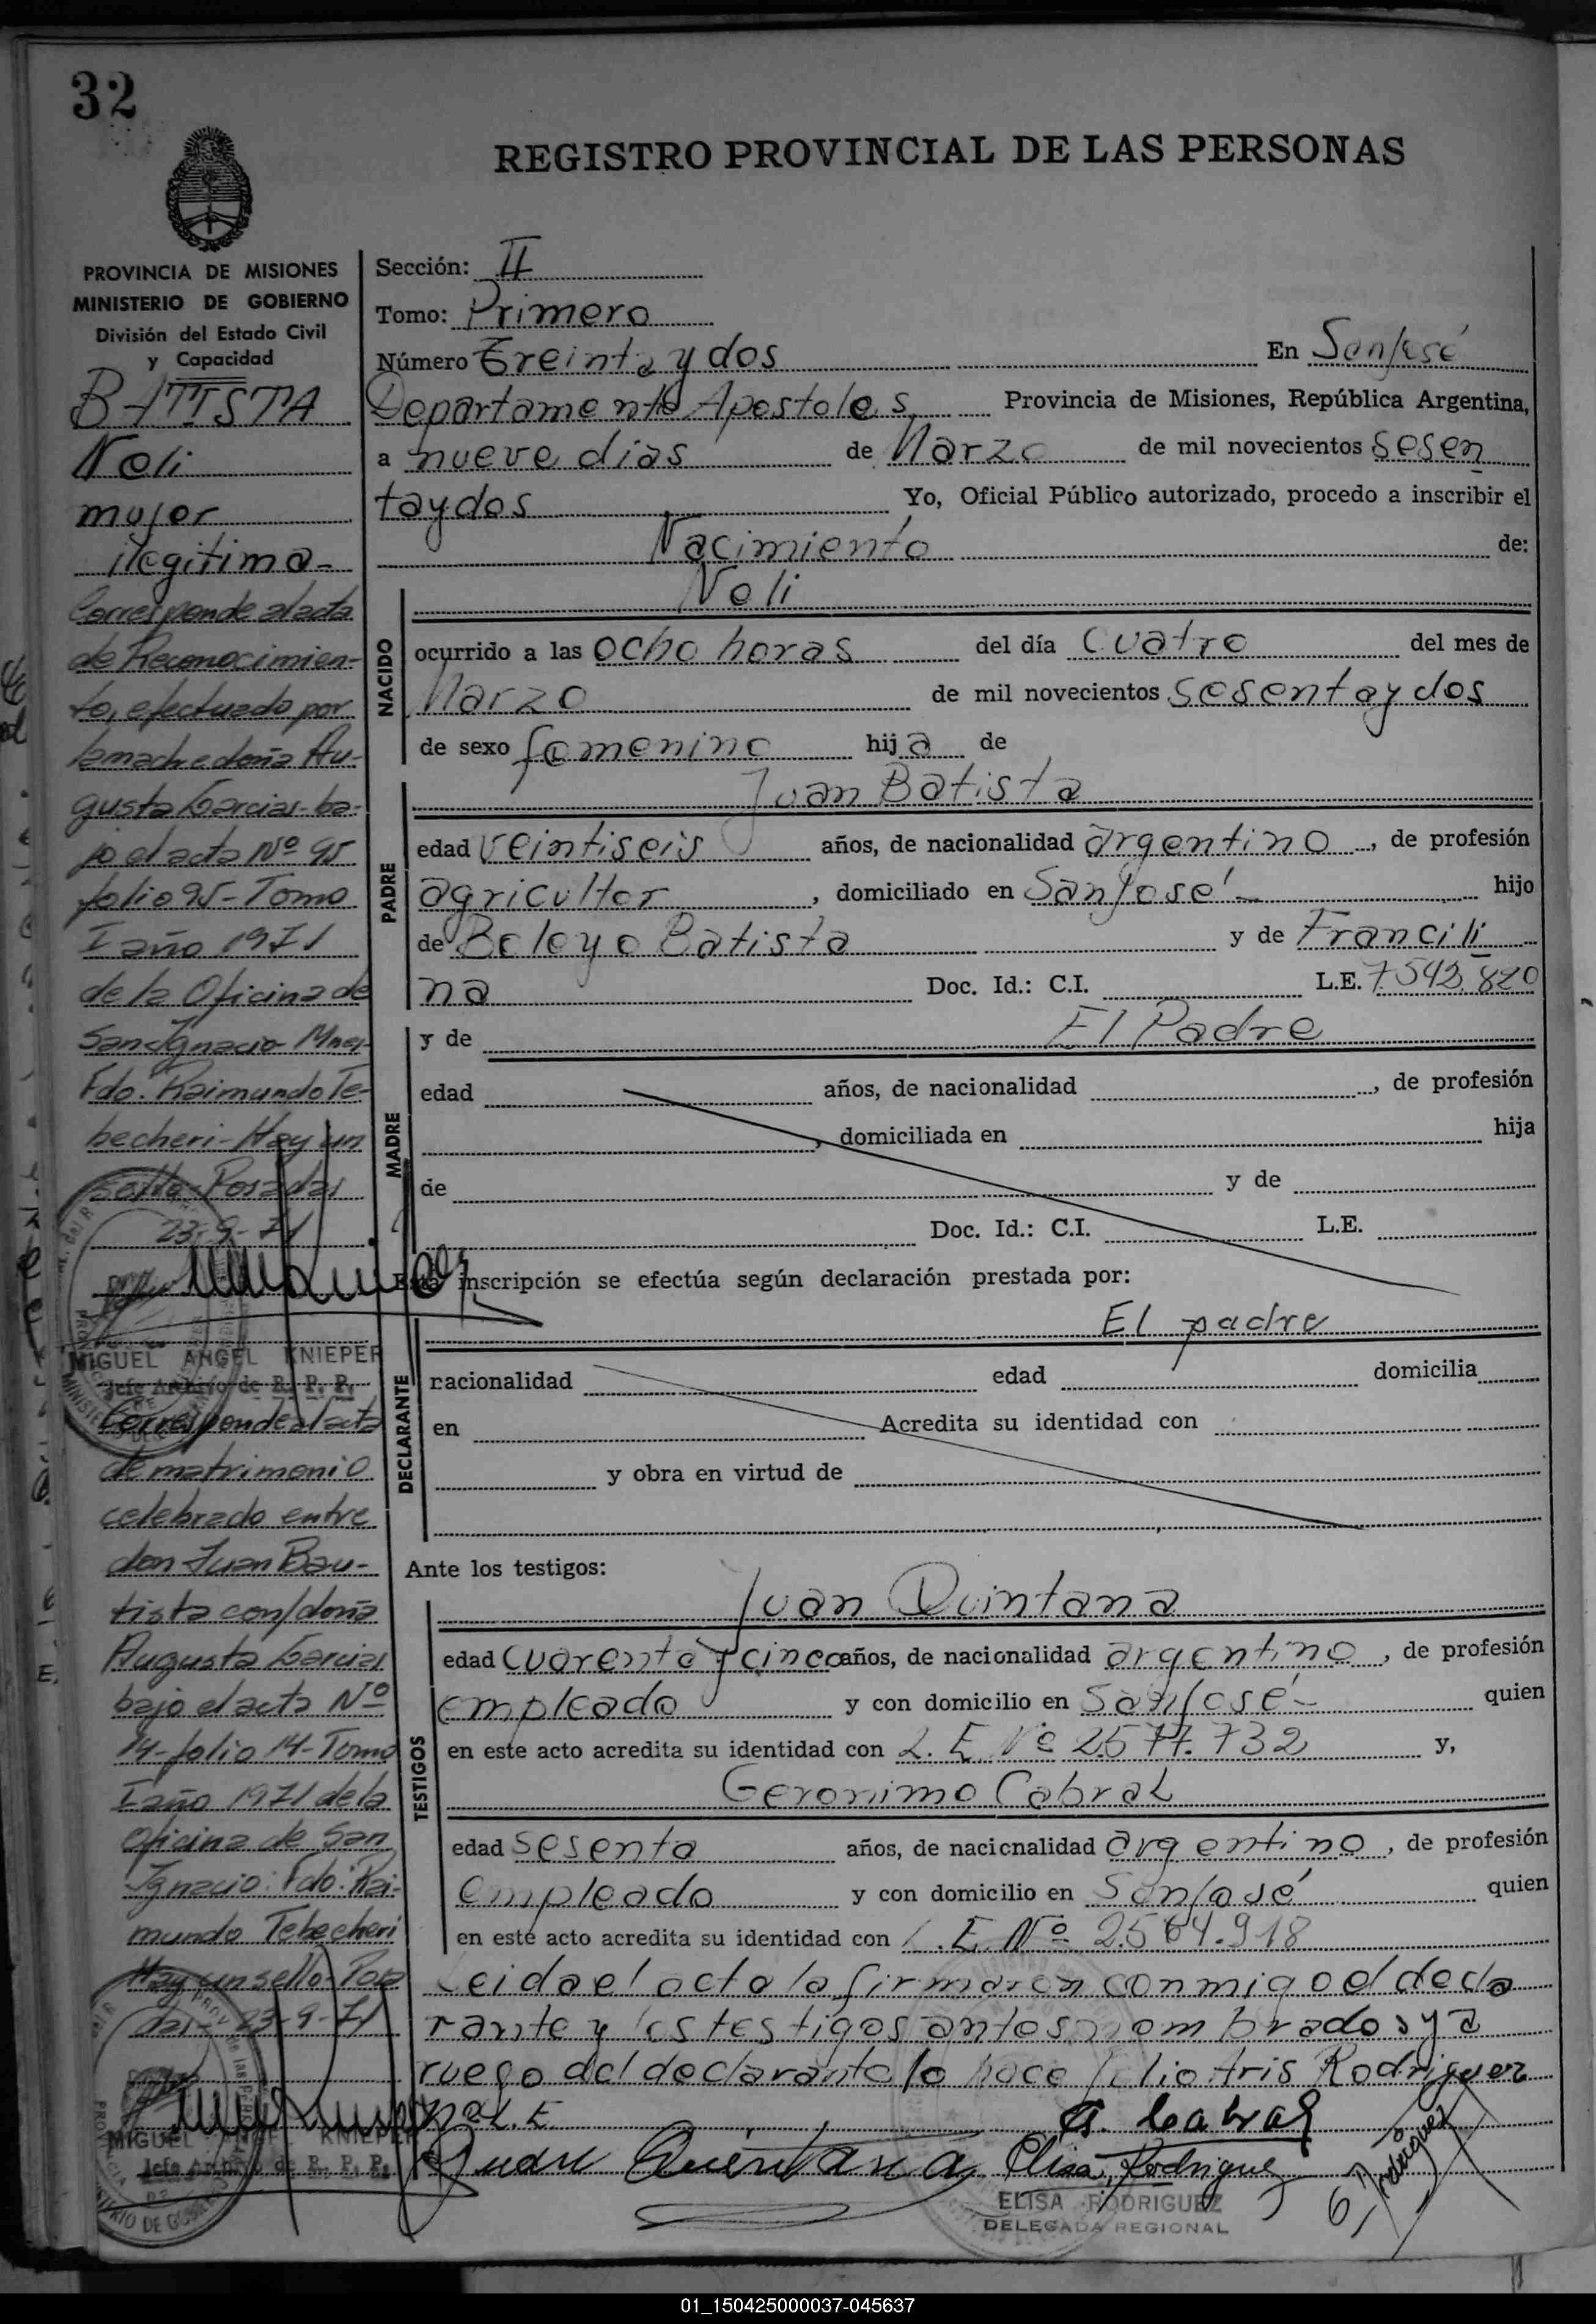 32
REGISTRO PROVINCIAL DE LAS PERSONAS
PROVINCIA DE MISIONES
MINISTERIO DE GOBIERNO
División del Estado Civil
y Capacidad
BATISTA
Noli
mujer
ilegitima-
Corresponde al acta
de Reconocimien-
to, efectuado por
la madre doña Au-
gusta Garcias- ba-
jo el acta Nº 95
folio 95- Tomo
I año 1971
de la Oficina de
San Ignacio Mnes-
Fdo. Raimundo Te-
becheri- Hay un
sello- Posadas
23-9-71
MIGUEL ANGEL KNIEPER
Jefe Archivo de R. P. P.
Corresponde al acta
de matrimonio
celebrado entre
don Juan Bau-
tista con/doña
Augusta Garcias
bajo el acta Nº
14- folio 14- Tomo
I año 1971 de la
Oficina de San
Ignacio: Fdo: Rai-
mundo Tebecheri
Hay un sello- Posa
das- 23-9-71
MIGUEL KNIEPER
Jefe Archivo de R. P. P.
Sección: II
Tomo: Primero
Número Treinta y dos En San José
Departamento Apostoles, Provincia de Misiones, República Argentina,
a nueve dias de Marzo de mil novecientos sesen
taydos Yo, Oficial Público autorizado, procedo a inscribir el
Nacimiento de:
Noli
NACIDO
ocurrido a las ocho horas del día cuatro del mes de
Marzo de mil novecientos sesentaydos
de sexo femenino hija de
Juan Batista
PADRE
edad veintiseis años, de nacionalidad argentino, de profesión
agricultor, domiciliado en San José- hijo
de Boleyo Batista y de Francili
na Doc. Id.: C.I. L.E. 7.542.820
MADRE
y de El Padre
edad años, de nacionalidad , de profesión
, domiciliada en hija
de y de
Doc. Id.: C.I. L.E.
Esta inscripción se efectúa según declaración prestada por:
El padre
DECLARANTE
nacionalidad edad domicilia
en Acredita su identidad con
y obra en virtud de
Ante los testigos:
Juan Quintana
TESTIGOS
edad cuarenta y cinco años, de nacionalidad argentino, de profesión
empleado y con domicilio en San José- quien
en este acto acredita su identidad con L. E. Nº 2.577.732 y,
Geronimo Cabral
edad sesenta años, de nacionalidad argentino, de profesión
empleado y con domicilio en San José quien
en este acto acredita su identidad con L. E. Nº 2.564.918
Leida el acta la firmaron conmigo el decla
rante y los testigos antes nombrados y a
ruego del declarante lo hace Rodriguez
G. Cabral
Juan Quintana Elisa Rodriguez
ELISA RODRIGUEZ
DELEGADA REGIONAL
01_150425000037-045637